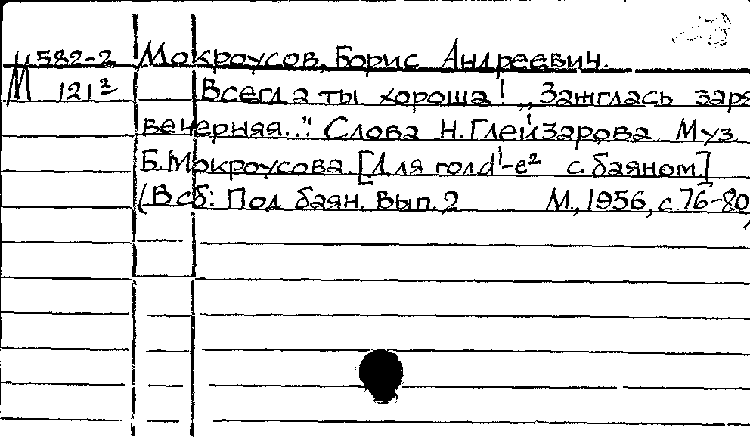 М 582-2 Мокроусов, Борис Андреевич.
121² Всегда ты хороша! „Зажглась заря
вечерняя.." Слова Н. Глейзарова Муз.
Б. Мокроусова. [Для гол d¹-e² с баяном]
(В сб: Под баян. Вып. 2 М., 1956, с 76-80)